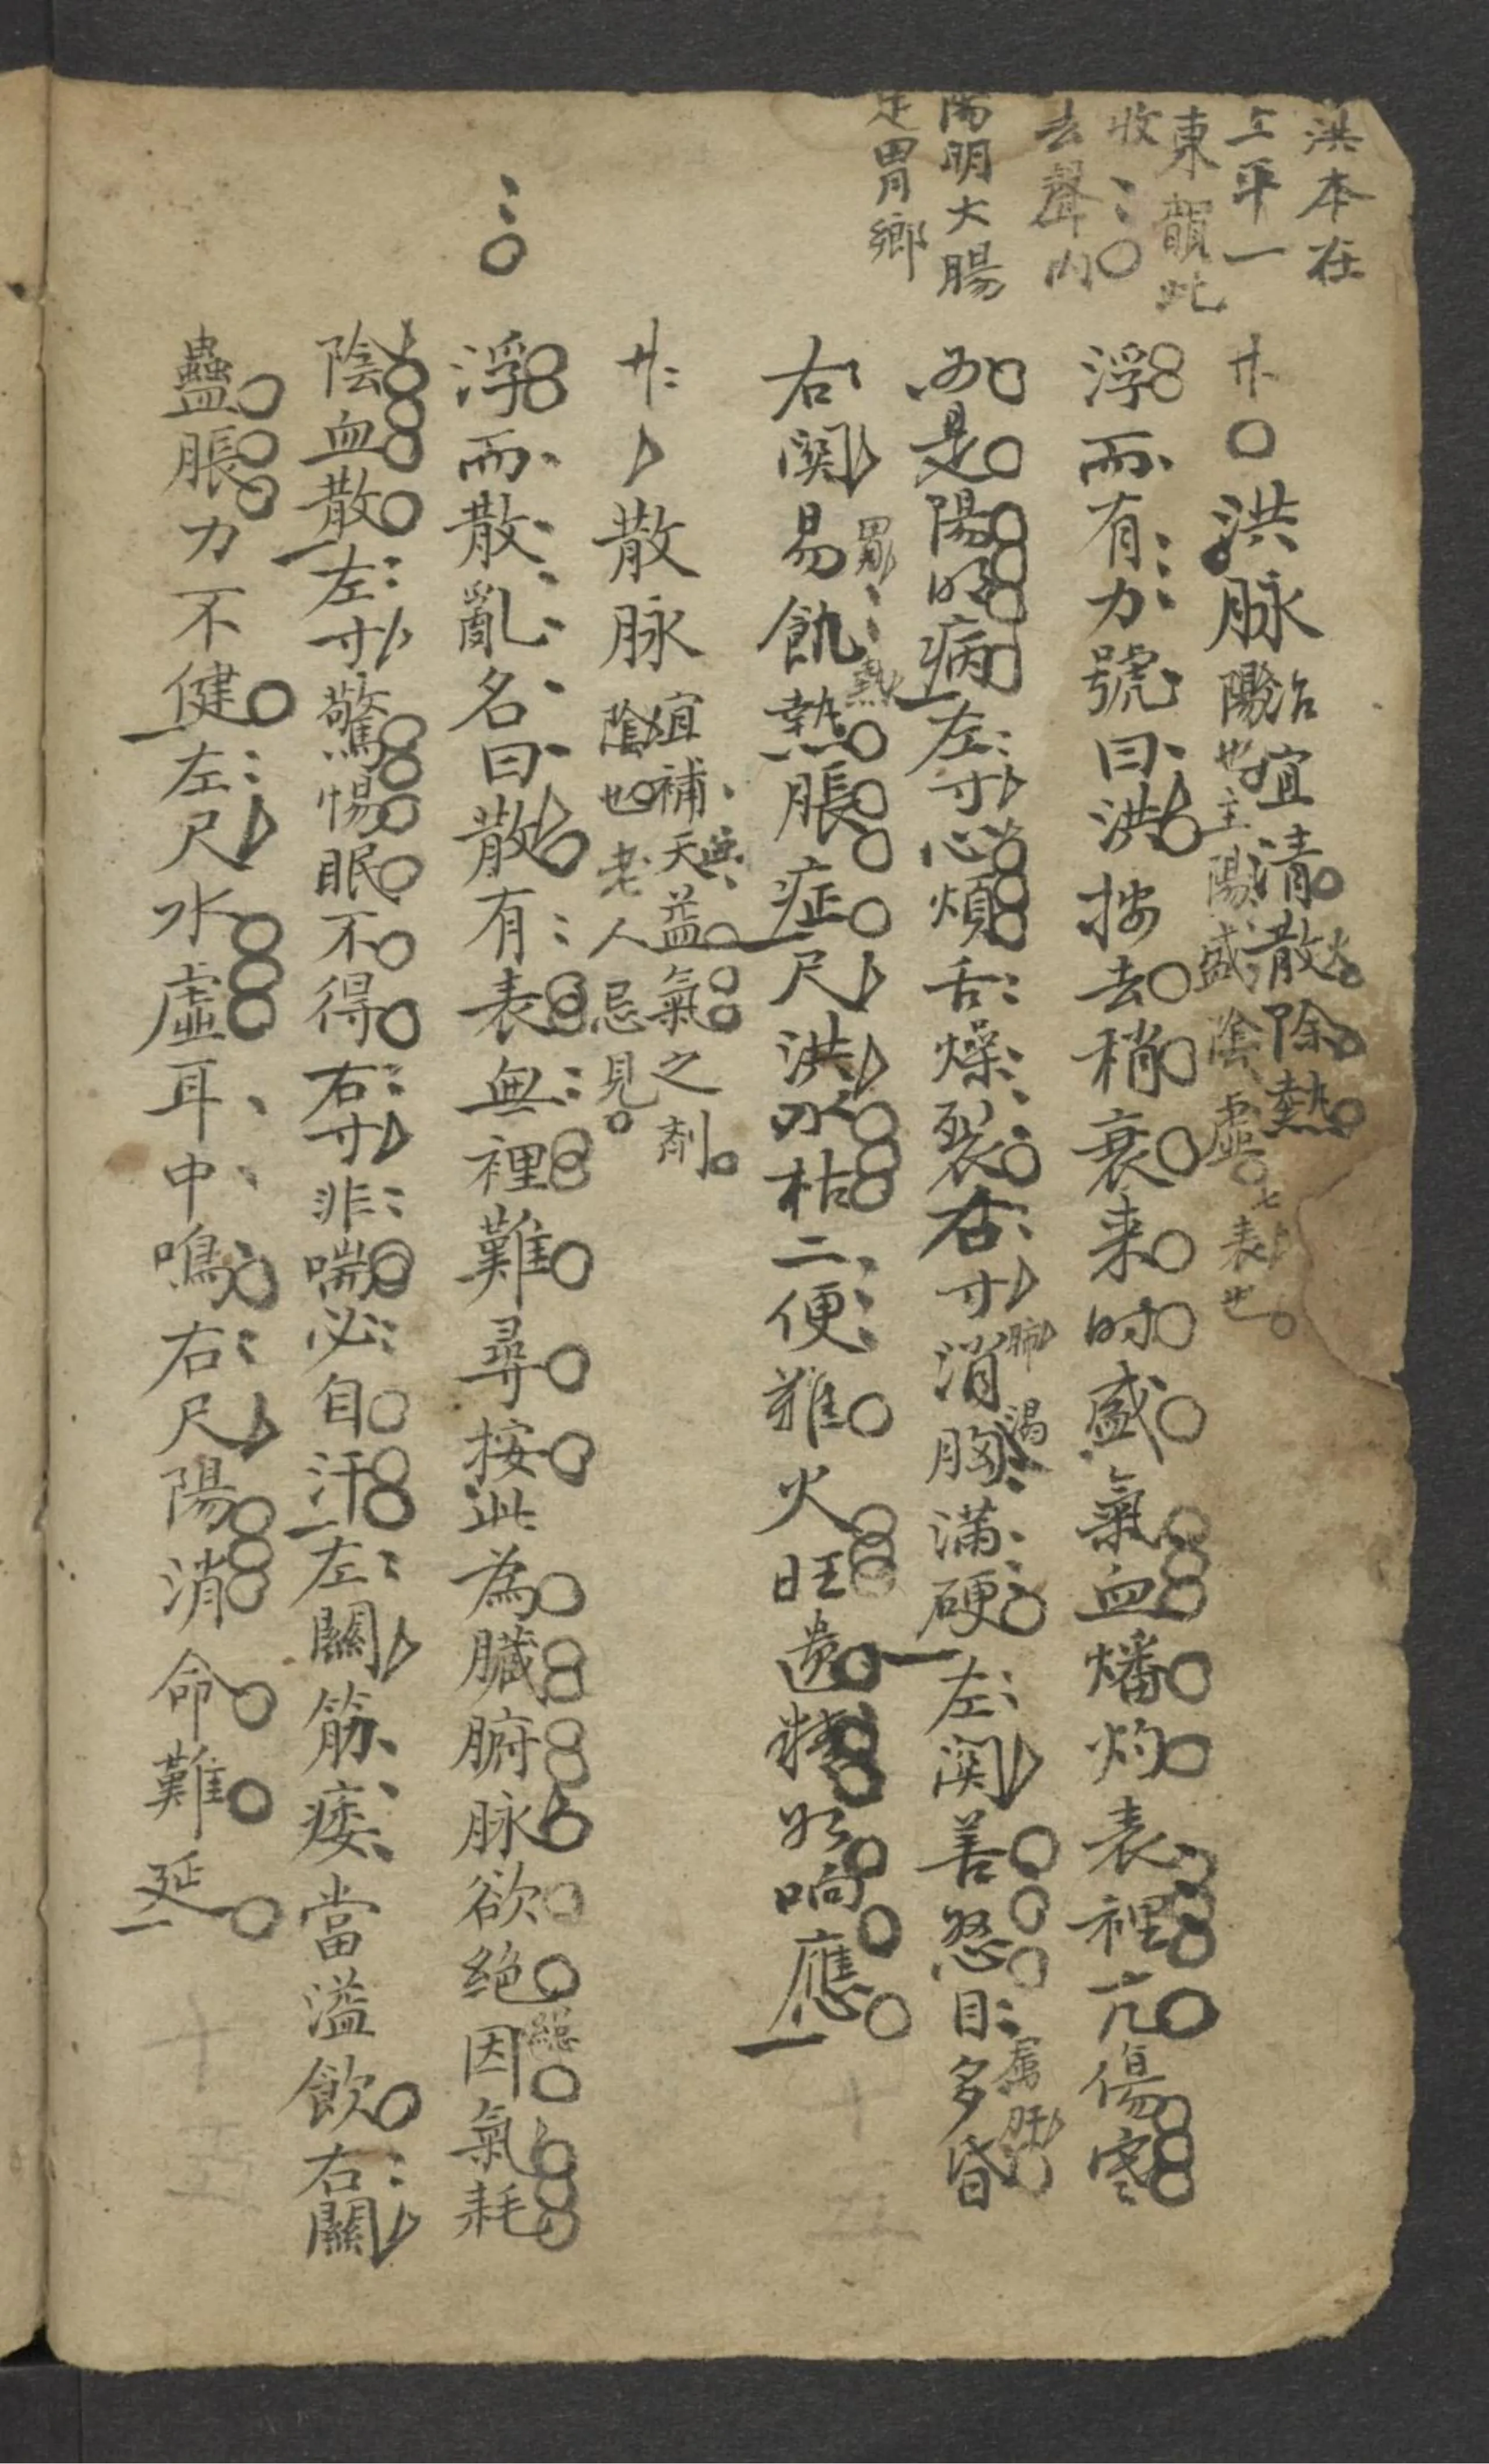 洪本在
上平一
東韻此
收
去聲內
陽明大腸
足胃鄉
廿〇洪脉
治宜清散除熱
陽也主陽盛陰虛
七表也
浮而有力號曰洪按去稍衰来时盛氣血燔灼表裡亢傷寒
必是陽明病左寸心煩舌燥裂右寸消胸滿硬左関善怒目多昏
肺渴
属肝
右関易飢熱脹症尺洪水枯二便难火旺遗精如响應
胃熱
廿二散脉
宜補天益氣之剤
與
陰也老人忌見
浮而散亂名曰散有表無裡難尋按此為臟腑脉欲絶因氣耗
陰血散左寸驚惕眠不得右寸非喘必自汗左關筋痿當溢飲右關
蠱脹力不健左尺水虛耳中鳴右尺陽消命難延
十五